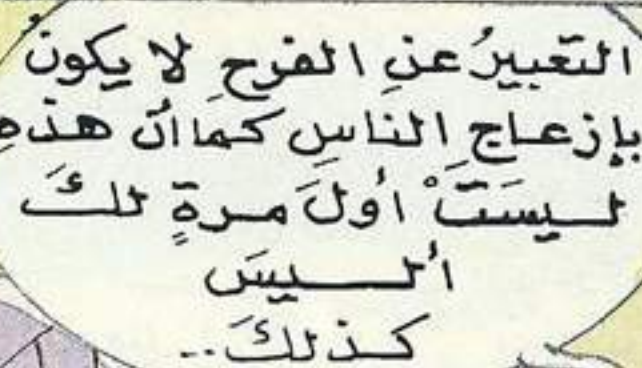 التعبيرُ عنِ الفرحِ لا يكونُ
بإزعاجِ الناسِ كمَا أن هذهِ
ليسَتْ أولَ مرةٍ لكَ
أليسَ
كذلكَ..